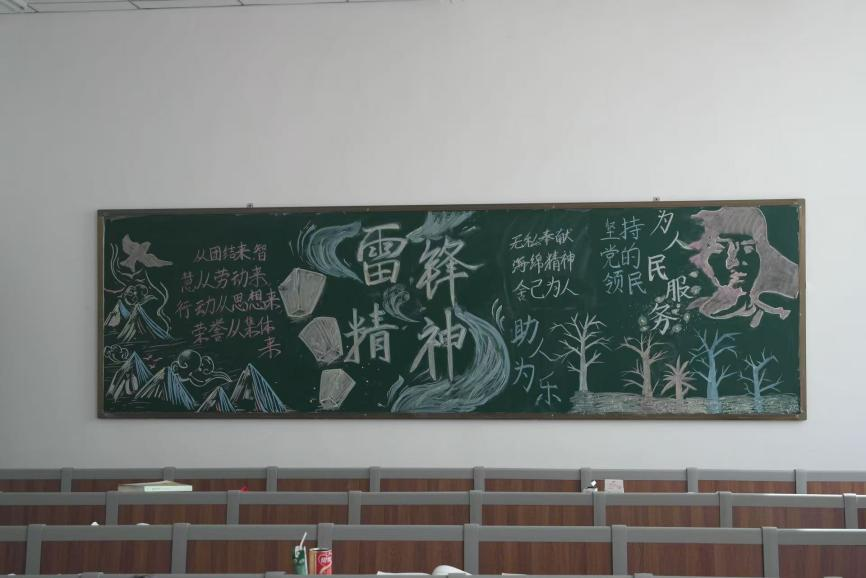 从团结来智
慧从劳动来
行动从思想来
荣誉从集体
来
雷锋
精神
无私奉献
海绵精神
舍己为人
助人
为乐
坚持
党的
领民
为人民服务